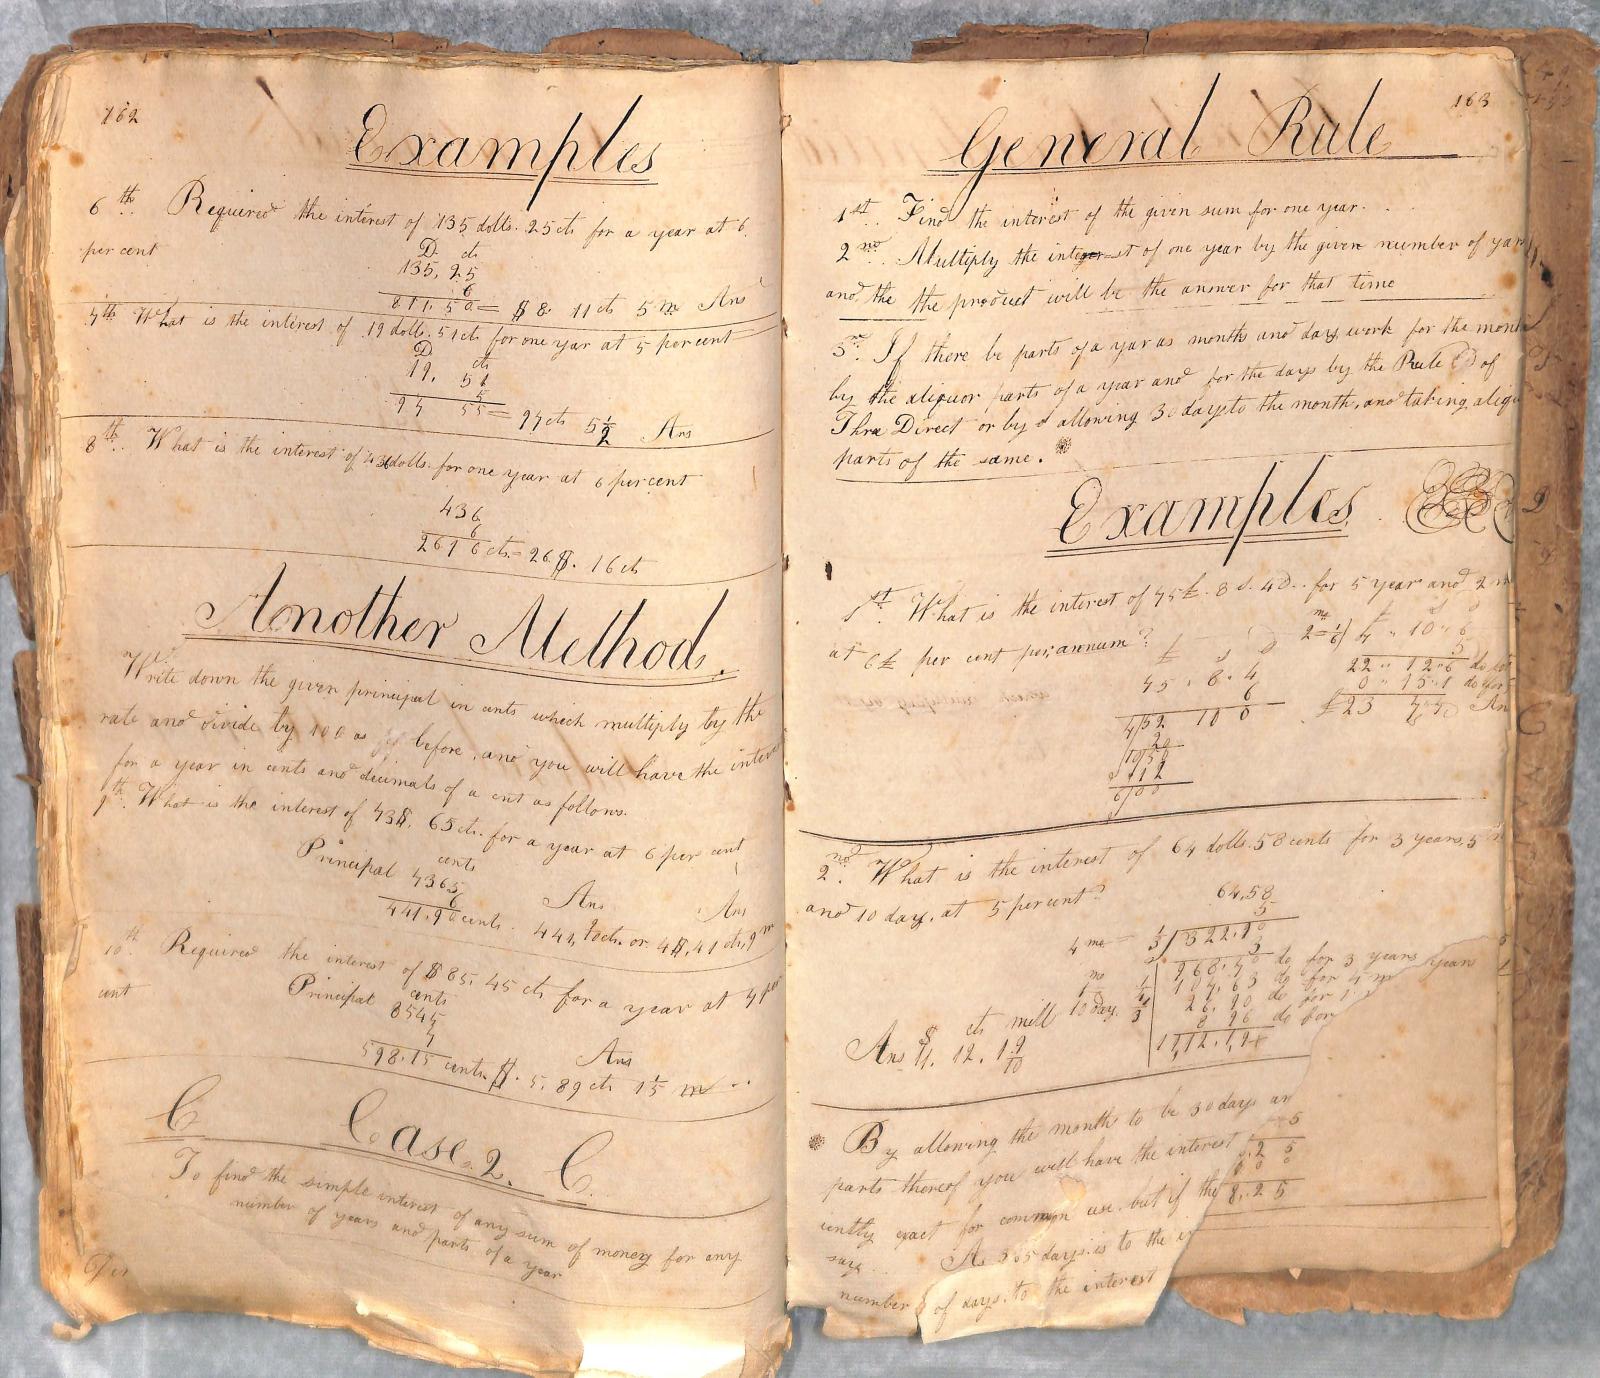 162
Examples
6th. Required the interest of 135 dolls. 25 cts for a year at 6
per cent
D. cts
135,25
6
811.50 = $8. 11 cts 5 m Ans
7th What is the interest of 19 dolls. 51 cts for one year at 5 per cent
D cts
19. 51
5
97 55 = 97 cts 5 1/2 Ans
8th. What is the interest of 436 dolls. for one year at 6 per cent
436
6
2616 cts = 26 $. 16 cts
Another Method.
Write down the given principal in cents which multiply by the
rate and divide by 100 as before, and you will have the inter
for a year in cents and decimals of a cent as follows.
9th. What is the interest of 73$. 65 cts. for a year at 6 per cent
cents
Principal 7365
6
441.90 cents. Ans 441, 90 cts. or 4$, 41 cts, 9 m Ans
10th. Required the interest of $85.45 cts for a year at 7 per
cent
cents
Principal 8545
7
598.15 cents. $. 5. 89 cts 15 m Ans
C Case. 2. C
To find the simple interest of any sum of money for any
number of years and parts of a year
163
General Rule
1st. Find the interest of the given sum for one year.
2nd. Multiply the interest of one year by the given number of years
and the the product will be the answer for that time
3rd. If there be parts of a year as months and days work for the month
by the aliquor parts of a year and for the days by the Rule of
Thre Direct or by allowing 30 days to the month, and taking aliqu
parts of the same.
Examples
1st. What is the interest of 75£. 8 s. 4 D. for 5 year and 2 m
at 6£ per cent per annum?
£ s D
75 . 8 . 4
6
4/52 10 0
20
10/50
12
6/00
mo
2=1/6 £ s D
4 " 10 " 6
5
22 " 12 " 6 do
0 " 15 " 1 do for
£23 7 " 7 An
2nd. What is the interest of 64 dolls. 58 cents for 3 years, 5 m
and 10 days, at 5 per cent?
64,58
5
4 mo 1/3 322,90
3
968.70 do for 3 years years
mo 1 1/4 107,63 do for 4 m
10 days 1/3 26.90 do for 1
8 96 do for
11,12.19
$ cts mill
Ans 11. 12. 1 9/10
By allowing the month to be 30 days an
parts thereof you will have the interest
iently exact for common use. but if the
say. As 365 days is to the in
number of days. to the interest
5
2 5
0 0
8,25